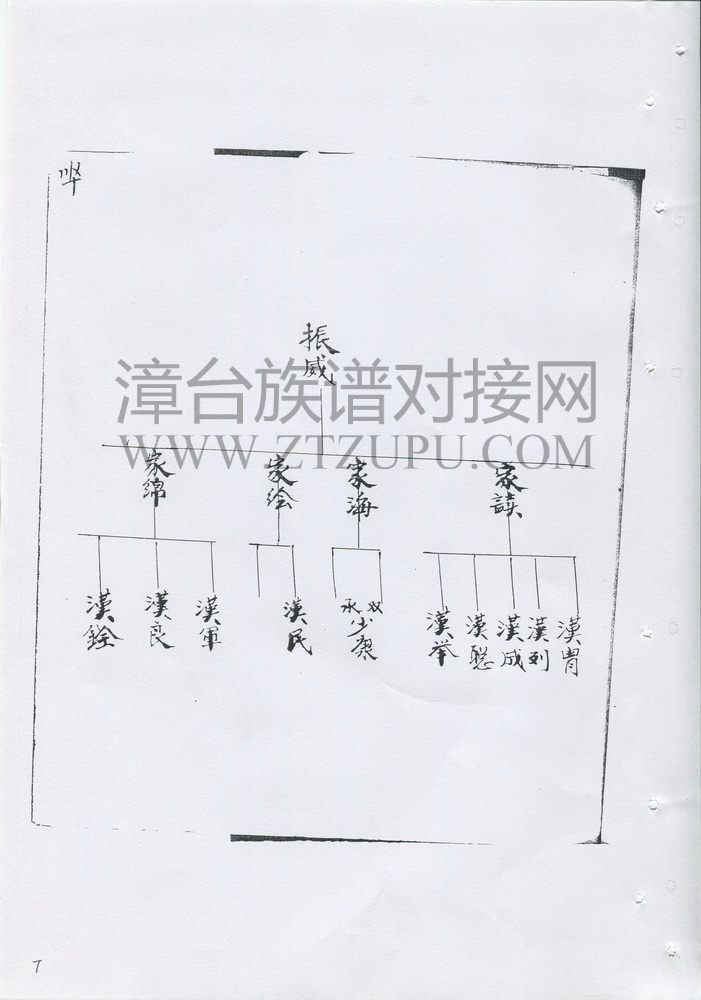 振威
漳台族谱对接网
WWW.ZTZUPU.COM
家綿
家绘
家海
家讃
漢銓
漢良
漢軍
漢民
双承
少栗
漢举
漢聪
漢成
漢列
漢胄
7